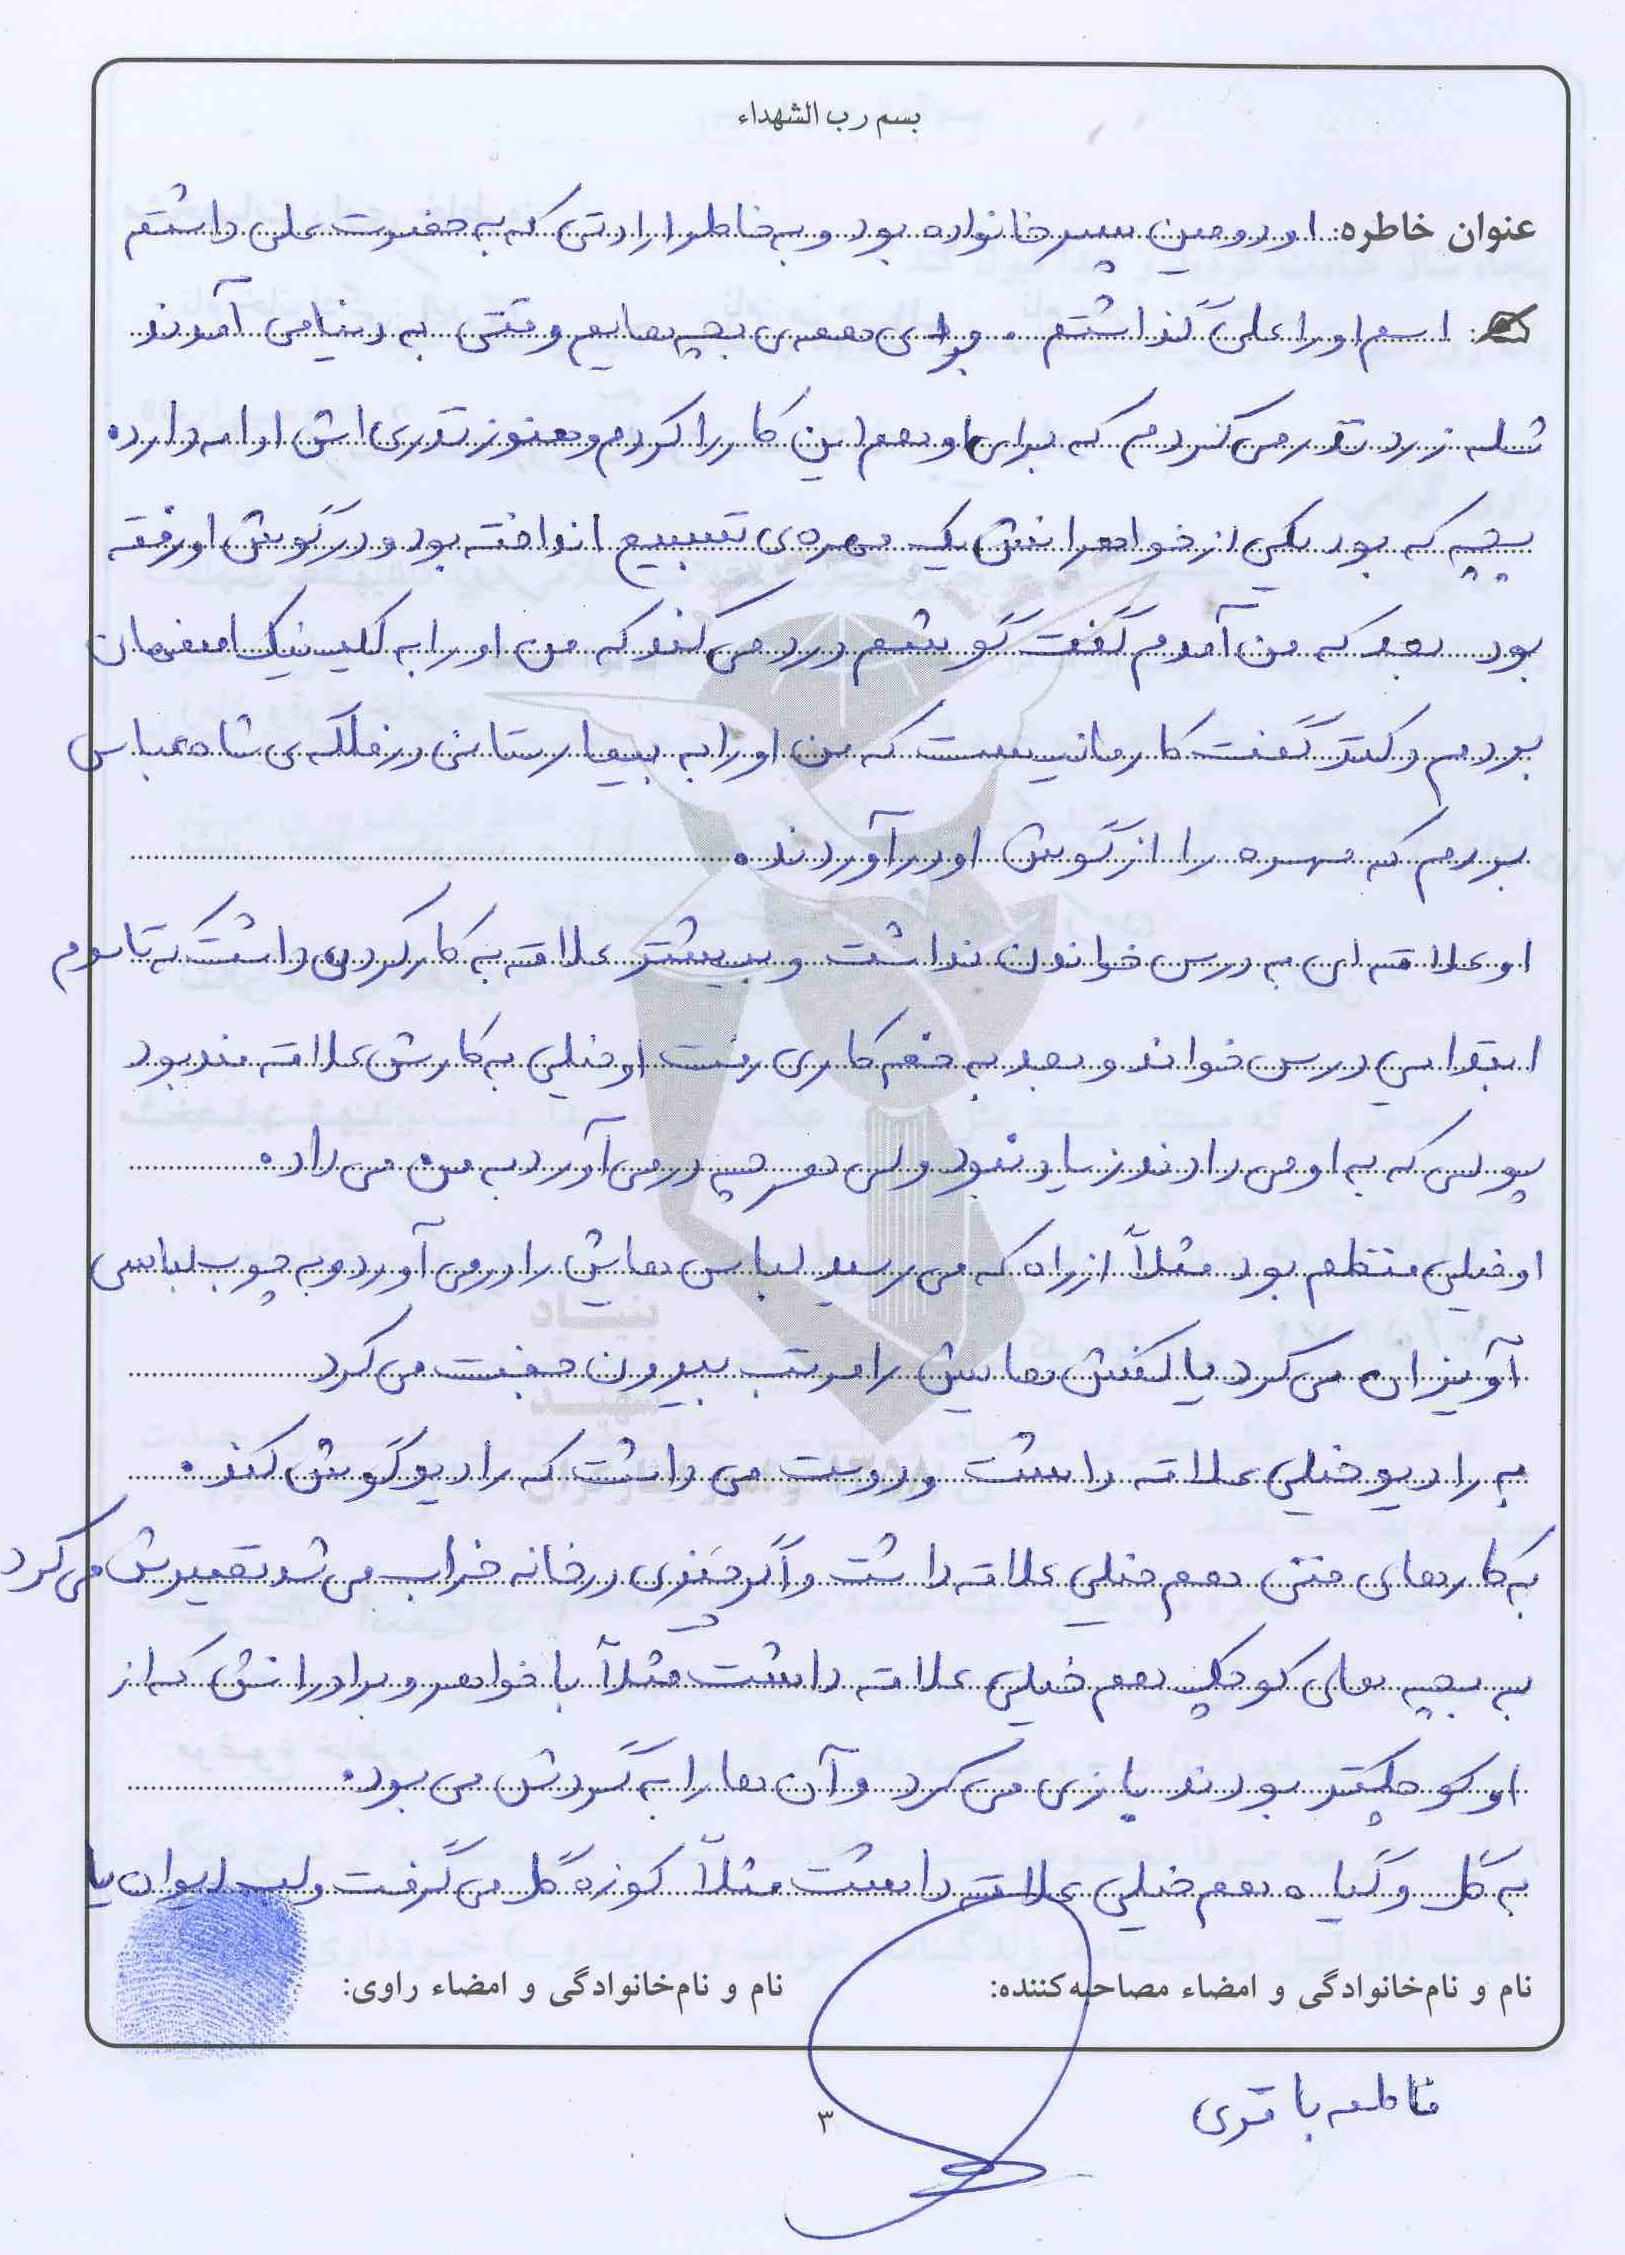 بسم رب الشهداء
عنوان خاطره: او دومین پسر خانواده بود و به خاطر ارادتی که به حضرت علی داشتم
اسم او را علی گذاشتم . برای همه ی بچه هایم وقتی به دنیا می آمدند
شله زرد نذر می کردم که برای او هم این کار را کردم و هنوز نذری اش ادامه دارد.
بچه که بود یکی از خواهرانش یک مهره ی تسبیح انداخته بود و در گوش او رفته
بود بعد که من آمدم گفت گوشم درد می کند که من او را به کلینیک اصفهان
بردم دکتر گفت کار ما نیست که من او را به بیمارستانی در فلکه ی شاه عباس
بردم که مهره را از گوش او در آوردند.
او علاقه ای به درس خواندن نداشت و بیشتر علاقه به کار کردن داشت که تا سوم
ابتدایی درس خواند و بعد به خم کاری رفت او خیلی به کارش علاقه مند بود
پولی که به او می دادند زیاد نبود ولی هر چه در می آورد به من می داد.
او خیلی منظم بود مثلاً از راه که می رسید لباس هایش را در می آورد و به چوب لباسی
آویزان می کرد یا کفش هایش را مرتب بیرون جفت می کرد
به رادیو خیلی علاقه داشت و دوست می داشت که رادیو گوش کند.
به کارهای فنی هم خیلی علاقه داشت و اگر چیزی در خانه خراب می شد تعمیرش می کرد
به بچه های کوچک هم خیلی علاقه داشت مثلاً با خواهر و برادرانش که از
او کوچکتر بودند بازی می کرد و آن ها را به گردش می برد.
به گل و گیاه هم خیلی علاقه داشت مثلاً کوزه گل می گرفت و لب ایوان یا
نام و نام خانوادگی و امضاء مصاحبه کننده: نام و نام خانوادگی و امضاء راوی:
فاطمه باقری
۳
بنیاد
شهید
و امور ایثارگران